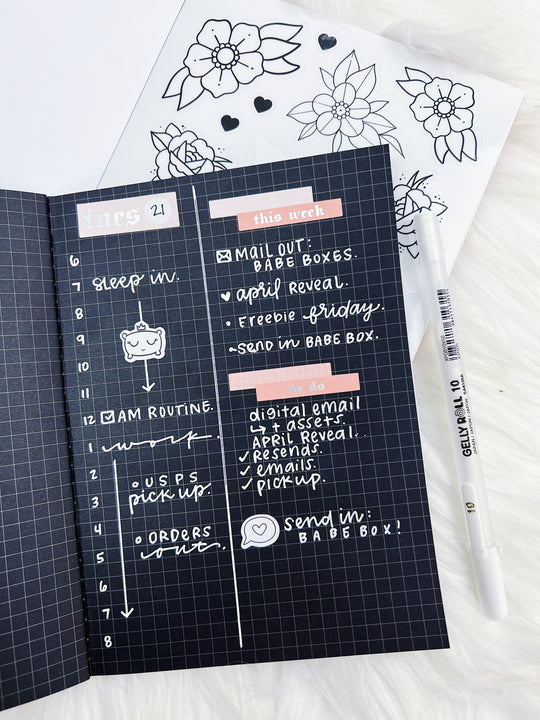 tues 21
6
7 sleep in.
8
9
10
11
12 AM ROUTINE.
1 work
2 USPS
3 pick up.
4
5 ORDERS
out.
6
7
8
this week
MAIL OUT:
BABE BOXES.
april REVEAL.
FREEBIE friday.
SEND IN BABE BOX.
to do
digital email
+ assets.
APRIL REVEAL.
RESENDS.
emails.
pick up.
send in:
BABE BOX!
GELLY ROLL 10
SAKURA
10